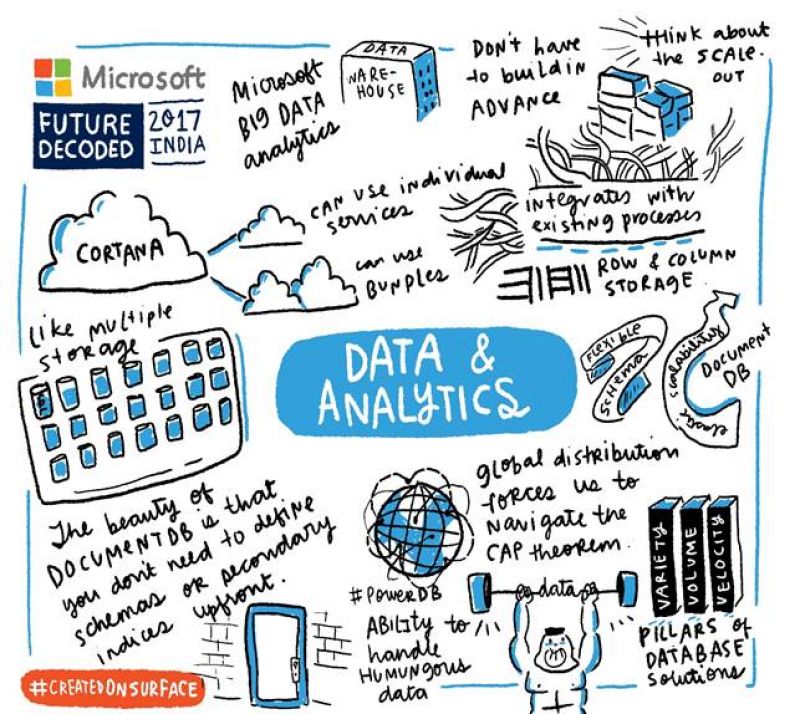 Microsoft
FUTURE
DECODED
2017
INDIA
Microsoft
BIG DATA
analytics
DATA
WARE-
HOUSE
DON'T have
to build in
ADVANCE
THINK about
the SCALE
OUT
CORTANA
CAN USE individual
services
can use
BUNDLES
integrates with
existing processes
ROW & COLUMN
STORAGE
like multiple
storage
DATA &
ANALYTICS
FLEXIBLE
SCHEMA
elastic scalability
DOCUMENT
DB
The beauty of
DOCUMENTDB is that
you don't need to define
schemas or secondary
indices upfront.
global distribution
forces us to
navigate the
CAP theorem.
#POWERDB
ABILITY to
handle
HUMUNGOUS
data
data
VARIETY
VOLUME
VELOCITY
PILLARS of
DATABASE
solutions
#CREATEDONSURFACE